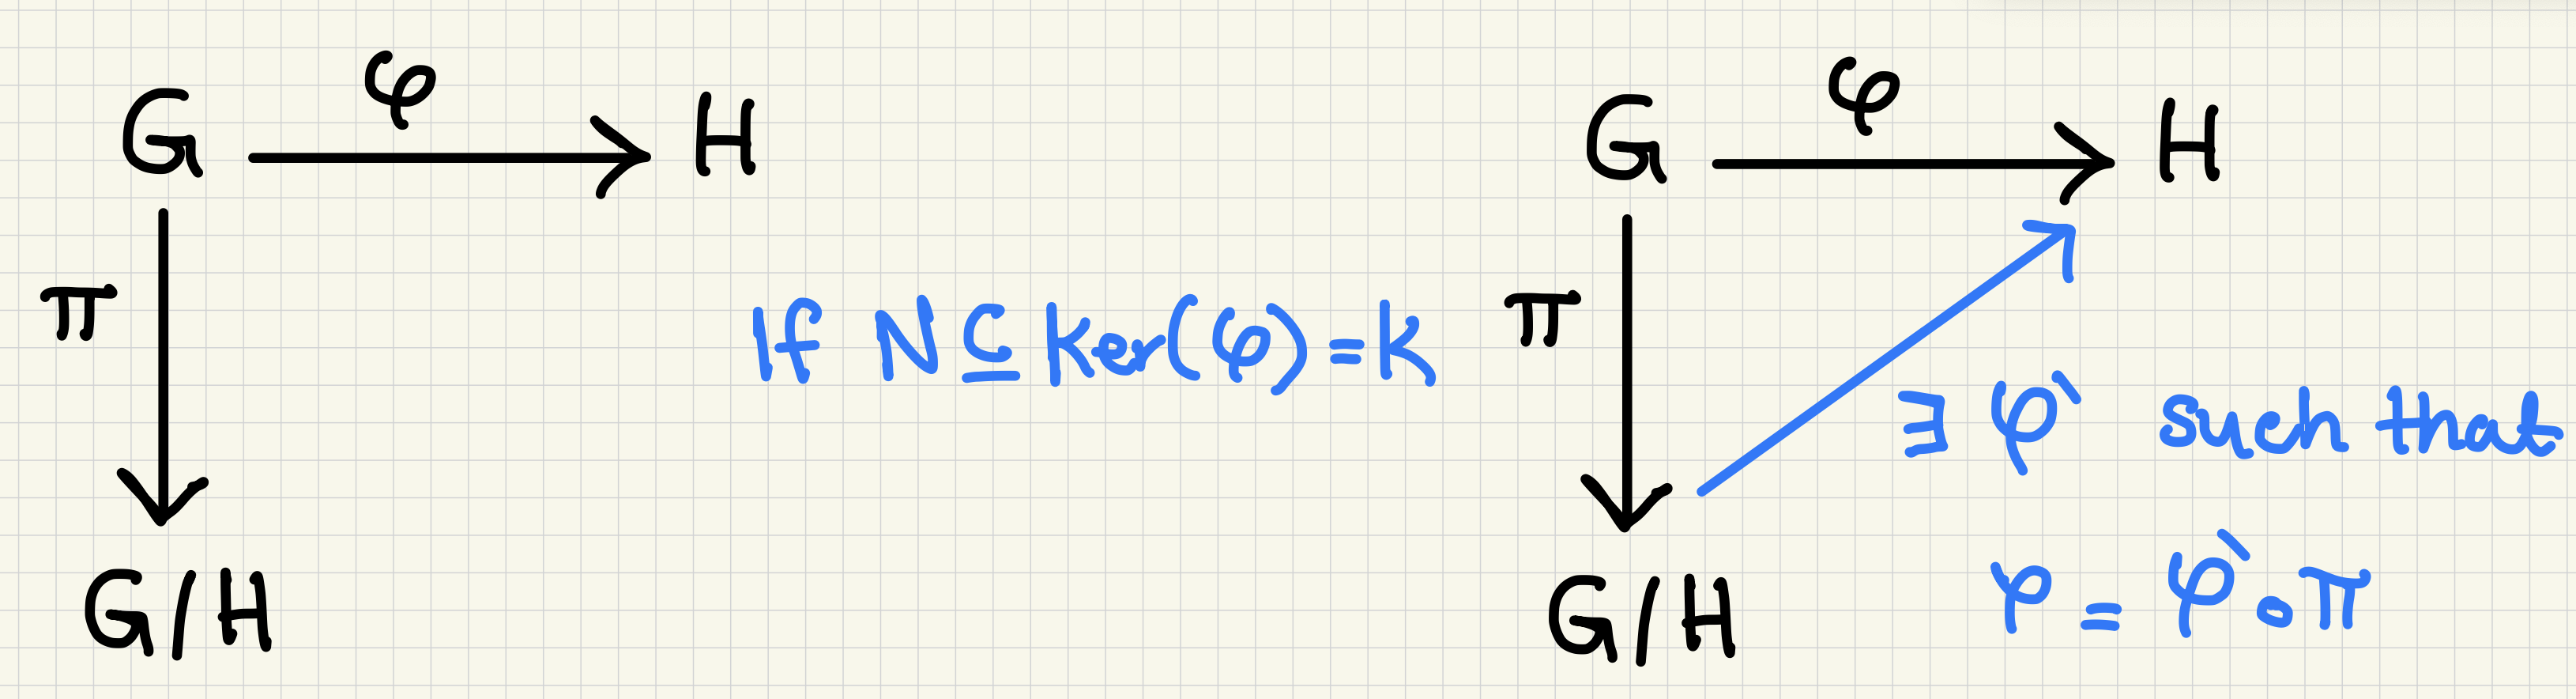 G φ H
π
G/H
If N ⊆ Ker(φ) = K
G φ H
π
∃ φ` such that
φ = φ` ∘ π
G/H